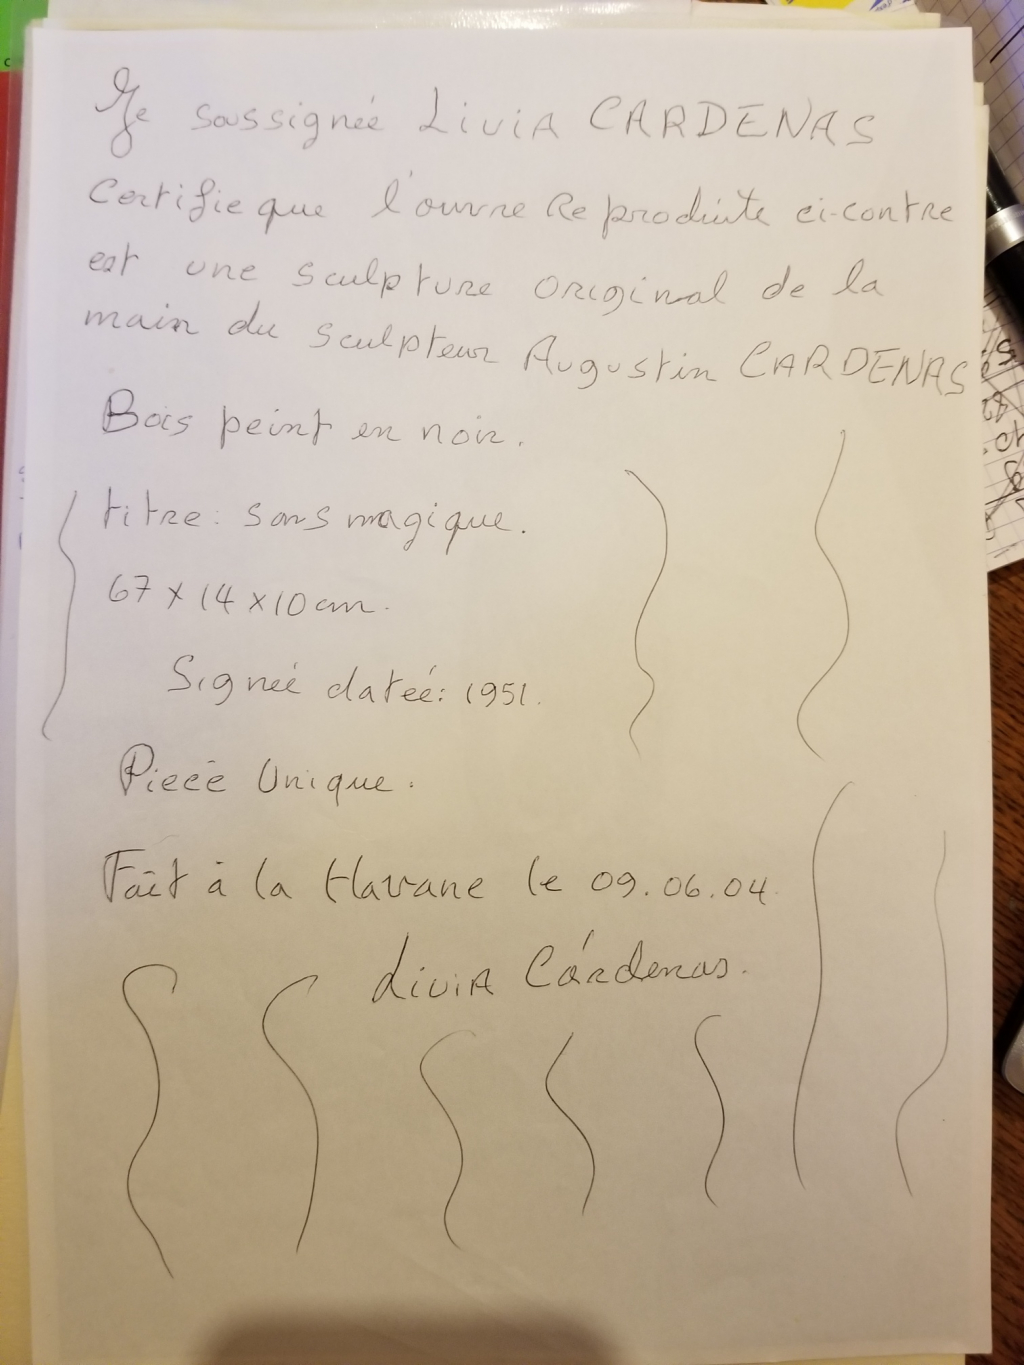 Je soussigneé Livia CARDENAS
Certifie que l'ouvre Reproduite ci-contre
est une sculpture original de la
main du sculpteur Augustin CARDENAS
Bois peint en noir.
titre: sans magique.
67 x 14 x 10 cm.
Signeé dateé: 1951.
Piece Unique.
Fait à la Havane le 09.06.04
Livia Cárdenas.